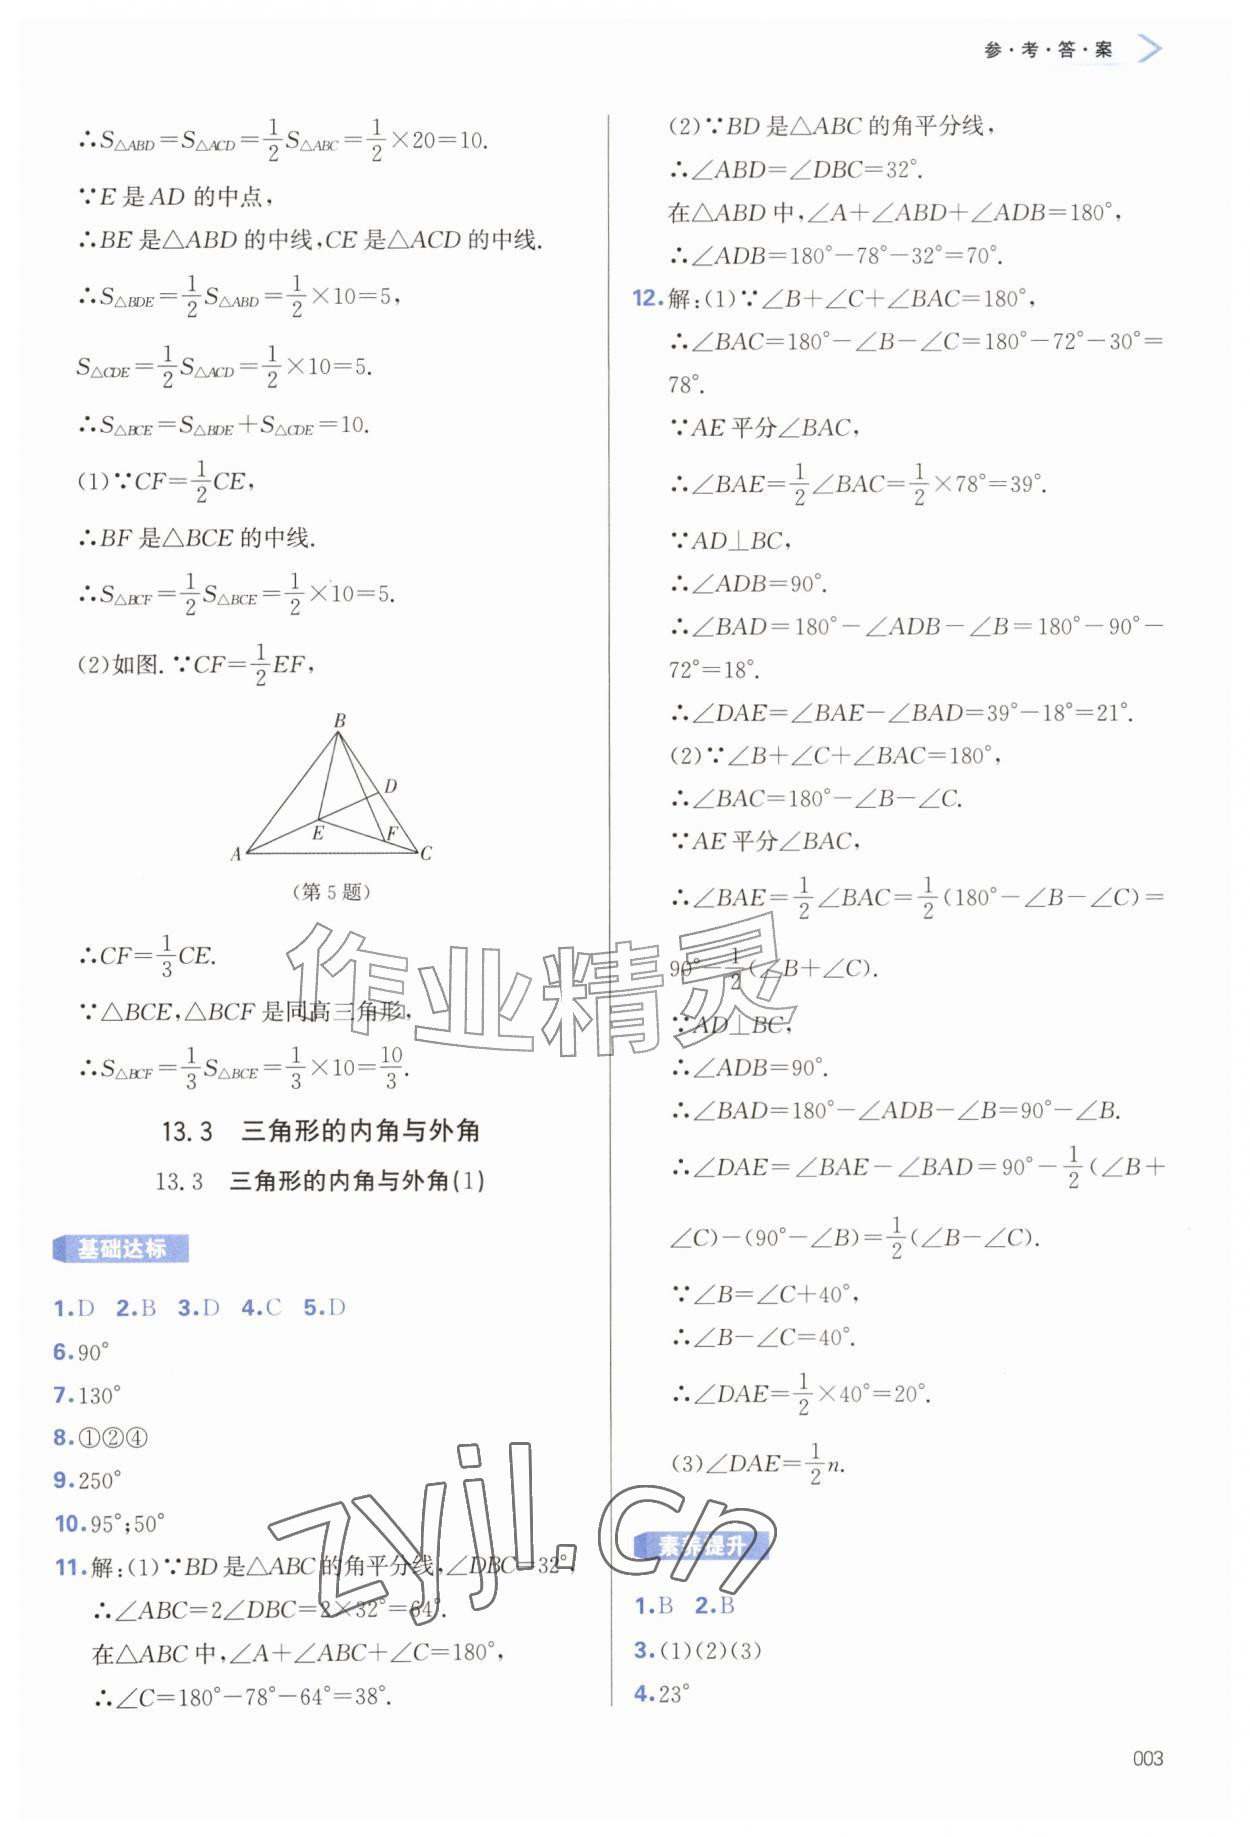 参·考·答·案
∴S△ABD=S△ACD=1/2S△ABC=1/2×20=10.
∵E是AD的中点,
∴BE是△ABD的中线,CE是△ACD的中线.
∴S△BDE=1/2S△ABD=1/2×10=5,
S△CDE=1/2S△ACD=1/2×10=5.
∴S△BCE=S△BDE+S△CDE=10.
(1)∵CF=1/2CE,
∴BF是△BCE的中线.
∴S△BCF=1/2S△BCE=1/2×10=5.
(2)如图.∵CF=1/2EF,
B
D
E
F
A
C
(第5题)
∴CF=1/3CE.
∵△BCE,△BCF是同高三角形,
∴S△BCF=1/3S△BCE=1/3×10=10/3.
13.3 三角形的内角与外角
13.3 三角形的内角与外角(1)
基础达标
1.D 2.B 3.D 4.C 5.D
6.90°
7.130°
8.①②④
9.250°
10.95°;50°
11.解:(1)∵BD是△ABC的角平分线,∠DBC=32°,
∴∠ABC=2∠DBC=2×32°=64°.
在△ABC中,∠A+∠ABC+∠C=180°,
∴∠C=180°-78°-64°=38°.
(2)∵BD是△ABC的角平分线,
∴∠ABD=∠DBC=32°.
在△ABD中,∠A+∠ABD+∠ADB=180°,
∴∠ADB=180°-78°-32°=70°.
12.解:(1)∵∠B+∠C+∠BAC=180°,
∴∠BAC=180°-∠B-∠C=180°-72°-30°=
78°.
∵AE平分∠BAC,
∴∠BAE=1/2∠BAC=1/2×78°=39°.
∵AD⊥BC,
∴∠ADB=90°.
∴∠BAD=180°-∠ADB-∠B=180°-90°-
72°=18°.
∴∠DAE=∠BAE-∠BAD=39°-18°=21°.
(2)∵∠B+∠C+∠BAC=180°,
∴∠BAC=180°-∠B-∠C.
∵AE平分∠BAC,
∴∠BAE=1/2∠BAC=1/2(180°-∠B-∠C)=
90°-1/2(∠B+∠C).
∵AD⊥BC,
∴∠ADB=90°.
∴∠BAD=180°-∠ADB-∠B=90°-∠B.
∴∠DAE=∠BAE-∠BAD=90°-1/2(∠B+
∠C)-(90°-∠B)=1/2(∠B-∠C).
∵∠B=∠C+40°,
∴∠B-∠C=40°.
∴∠DAE=1/2×40°=20°.
(3)∠DAE=1/2n.
素养提升
1.B 2.B
3.(1)(2)(3)
4.23°
作业精灵
zyjl.cn
003